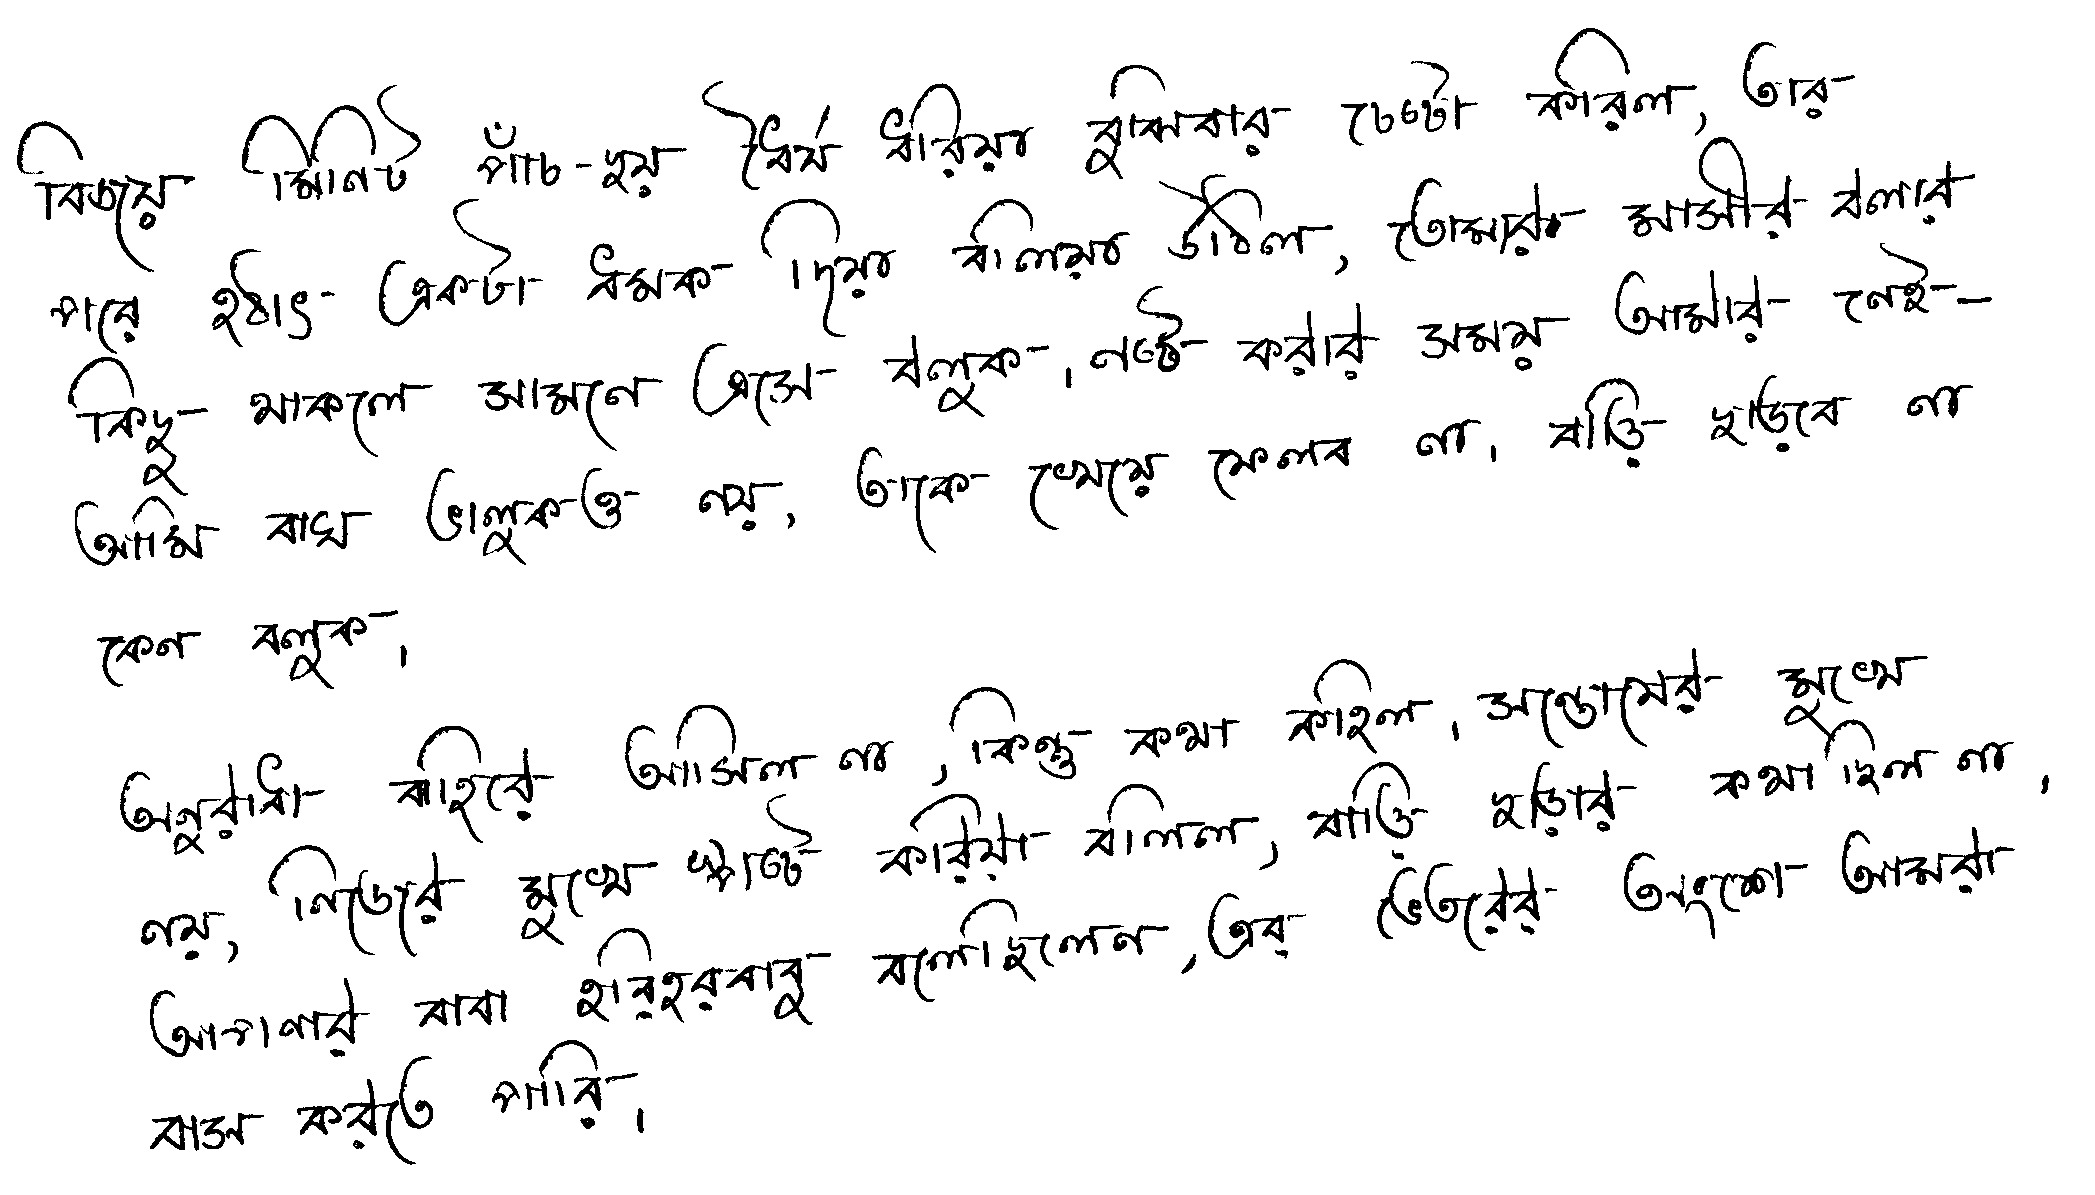 বিজয়ে মিনিট পাঁচ-ছয় ধৈর্য ধরিয়া বুঝিবার চেষ্টা করিল, তার
পরে হঠাৎ একটা ধমক দিয়া বলিয়া উঠিল, তোমার মাসীর বলার
কিছু থাকলে সামনে এসে বলুক। নষ্ট করার সময় আমার নেই–
আমি বাঘ ভালুকও নয়, তাকে খেয়ে ফেলব না। বাড়ি ছাড়বে না
কেন বলুক।
অনুরাধা বাহিরে আসিল না, কিন্তু কথা কহিল। সন্তোষের মুখে
নয়, নিজের মুখে স্পষ্ট করিয়া বলিল, বাড়ি ছাড়ার কথা ছিল না।
আপনার বাবা হরিহরবাবু বলেছিলেন, এর ভেতরের অংশে আমরা
বাস করতে পারি।